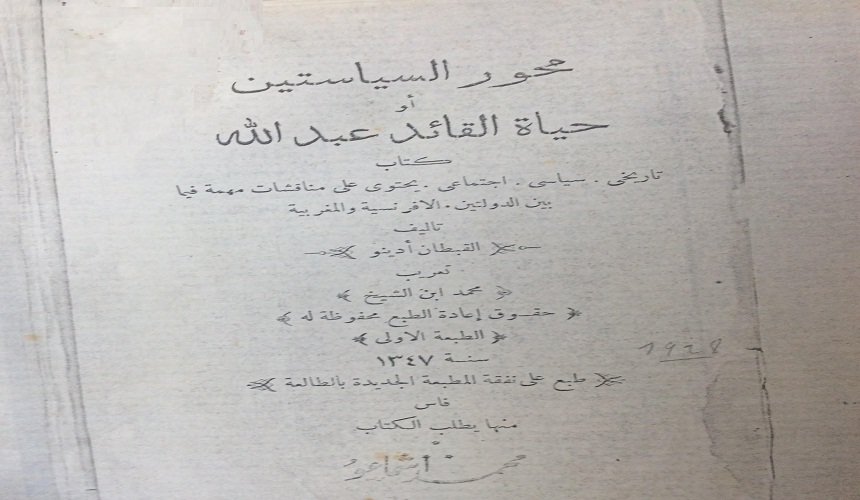 محور السياستين
أو
حياة القائد عبد الله
كتاب
تاريخى . سياسى . اجتماعى . يحتوى على مناقشات مهمة فيما
بين الدولتين . الافرنسية والمغربية
تاليف
القبطان أدينو
تعريب
محمد ابن الشيخ
حقوق إعادة الطبع محفوظة له
الطبعة الاولى
سنة ١٣٤٧
1928
طبع على نفقة المطبعة الجديدة بالطالعة
فاس
منها يطلب الكتاب
محمد